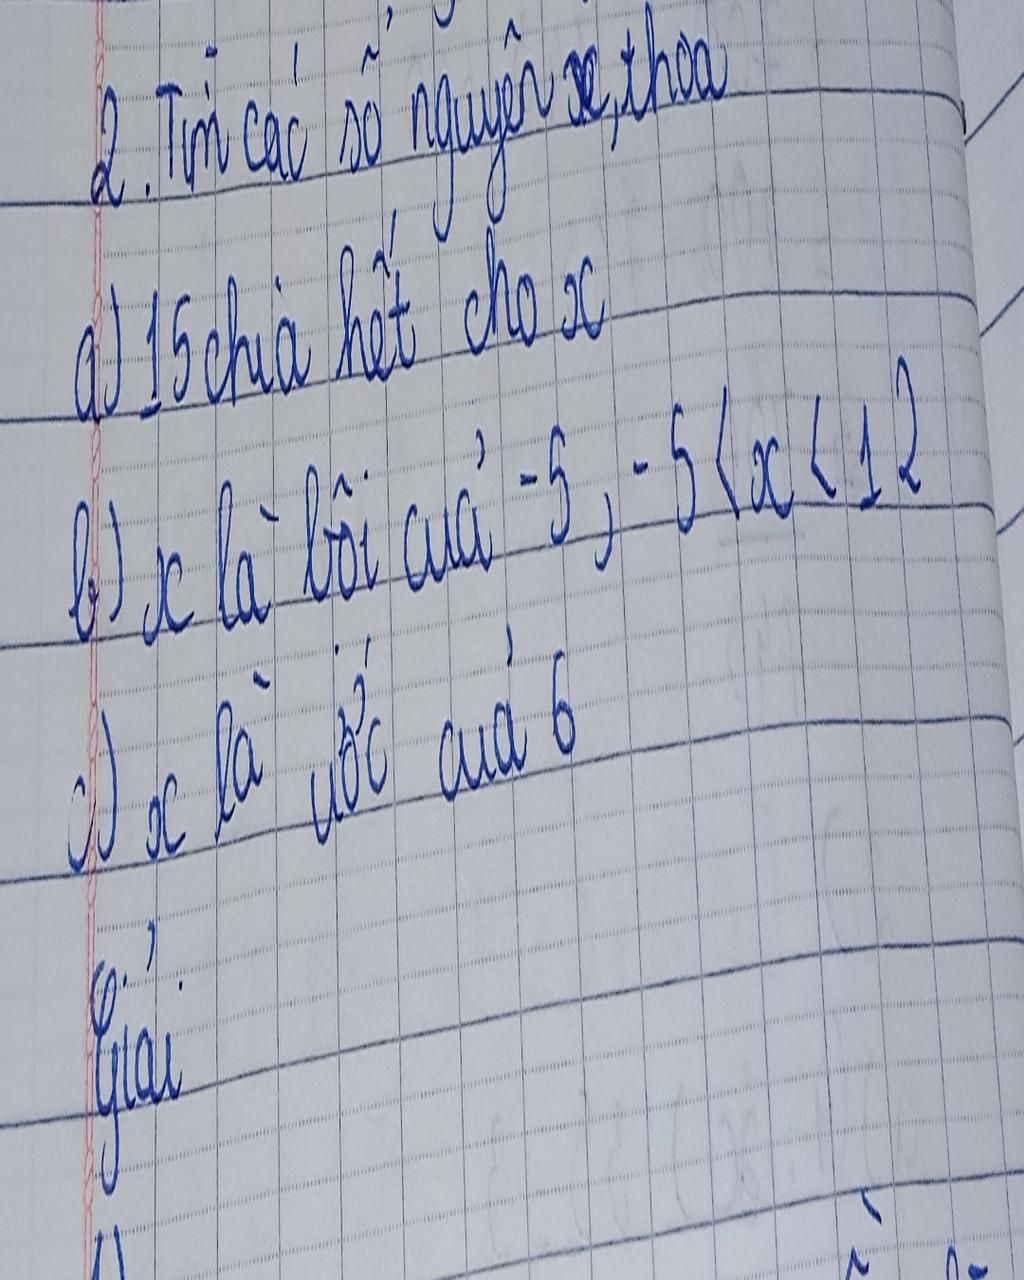 2. Tìm các số nguyên x, thỏa
a) 15 chia hết cho x
b) x là bội của -5, -5 < x < 12
c) x là ước của 6
Giải